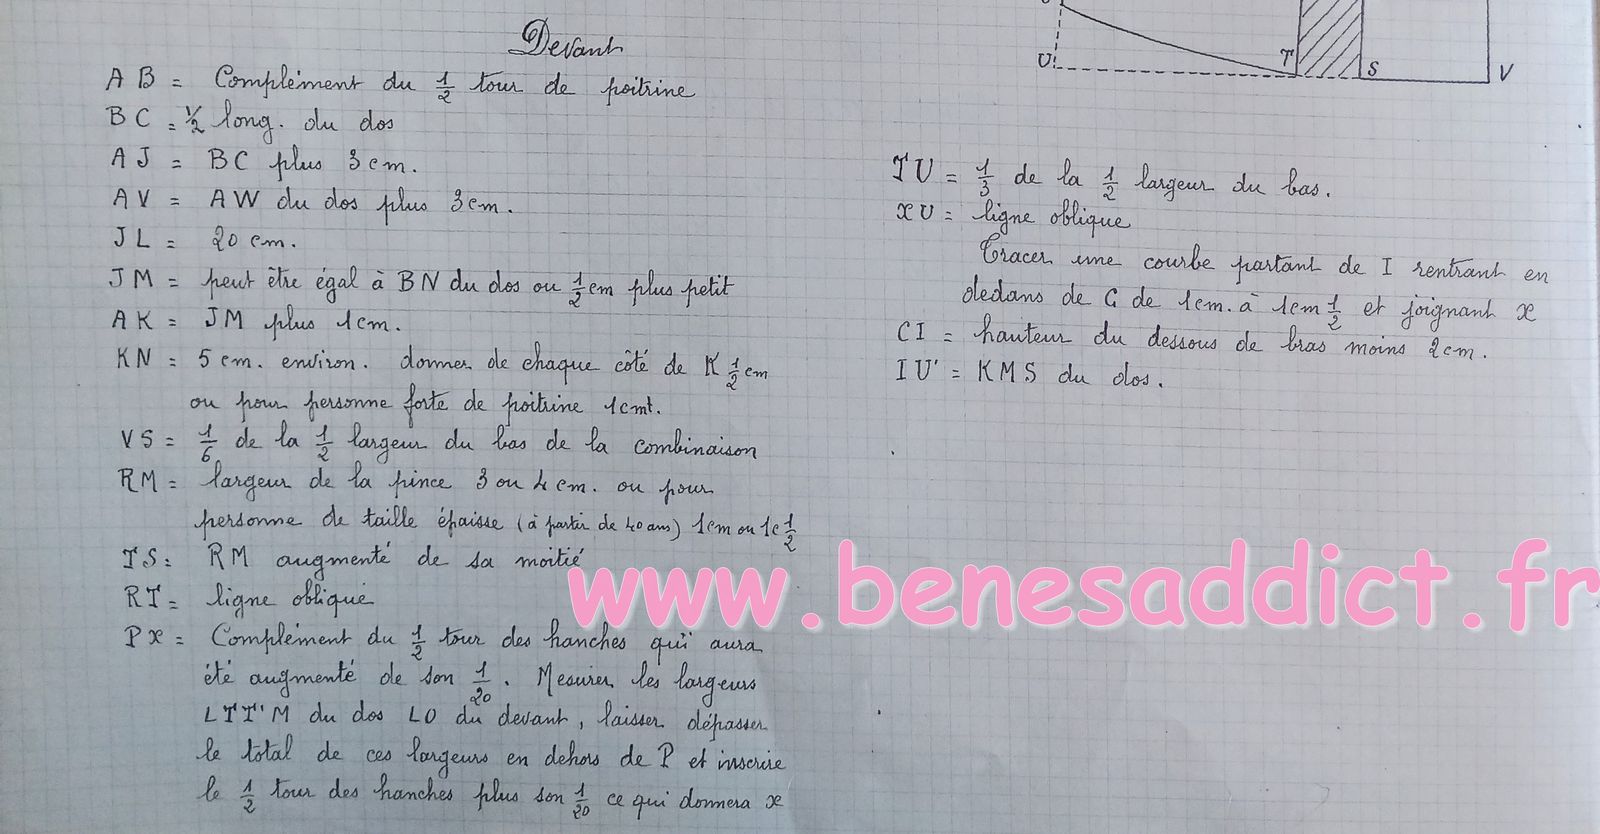 Devant
AB = Complément du 1/2 tour de poitrine
BC = 1/2 long. du dos
AJ = BC plus 3cm.
AV = AW du dos plus 3cm.
JL = 20 cm.
JM = peut être égal à BN du dos ou 1/2 cm plus petit
AK = JM plus 1cm.
KN = 5 cm. environ. donner de chaque côté de K 1/2 cm
ou pour personne forte de poitrine 1cmt.
VS = 1/6 de la 1/2 largeur du bas de la combinaison
RM = largeur de la pince 3 ou 4 cm. ou pour
personne de taille épaisse (à partir de 40 ans) 1cm ou 1c 1/2
TS = RM augmenté de sa moitié
RT = ligne oblique
Px = Complément du 1/2 tour des hanches qui aura
été augmenté de son 1/20. Mesurer les largeurs
LTT'M du dos LO du devant, laisser dépasser
le total de ces largeurs en dehors de P et inscrire
le 1/2 tour des hanches plus son 1/20 ce qui donnera x
U'
T
S
V
TU = 1/3 de la 1/2 largeur du bas.
xU = ligne oblique
Tracer une courbe partant de I rentrant en
dedans de G de 1cm. à 1cm 1/2 et joignant x
CI = hauteur du dessous de bras moins 2cm.
IU' = KMS du dos.
www.benesaddict.fr